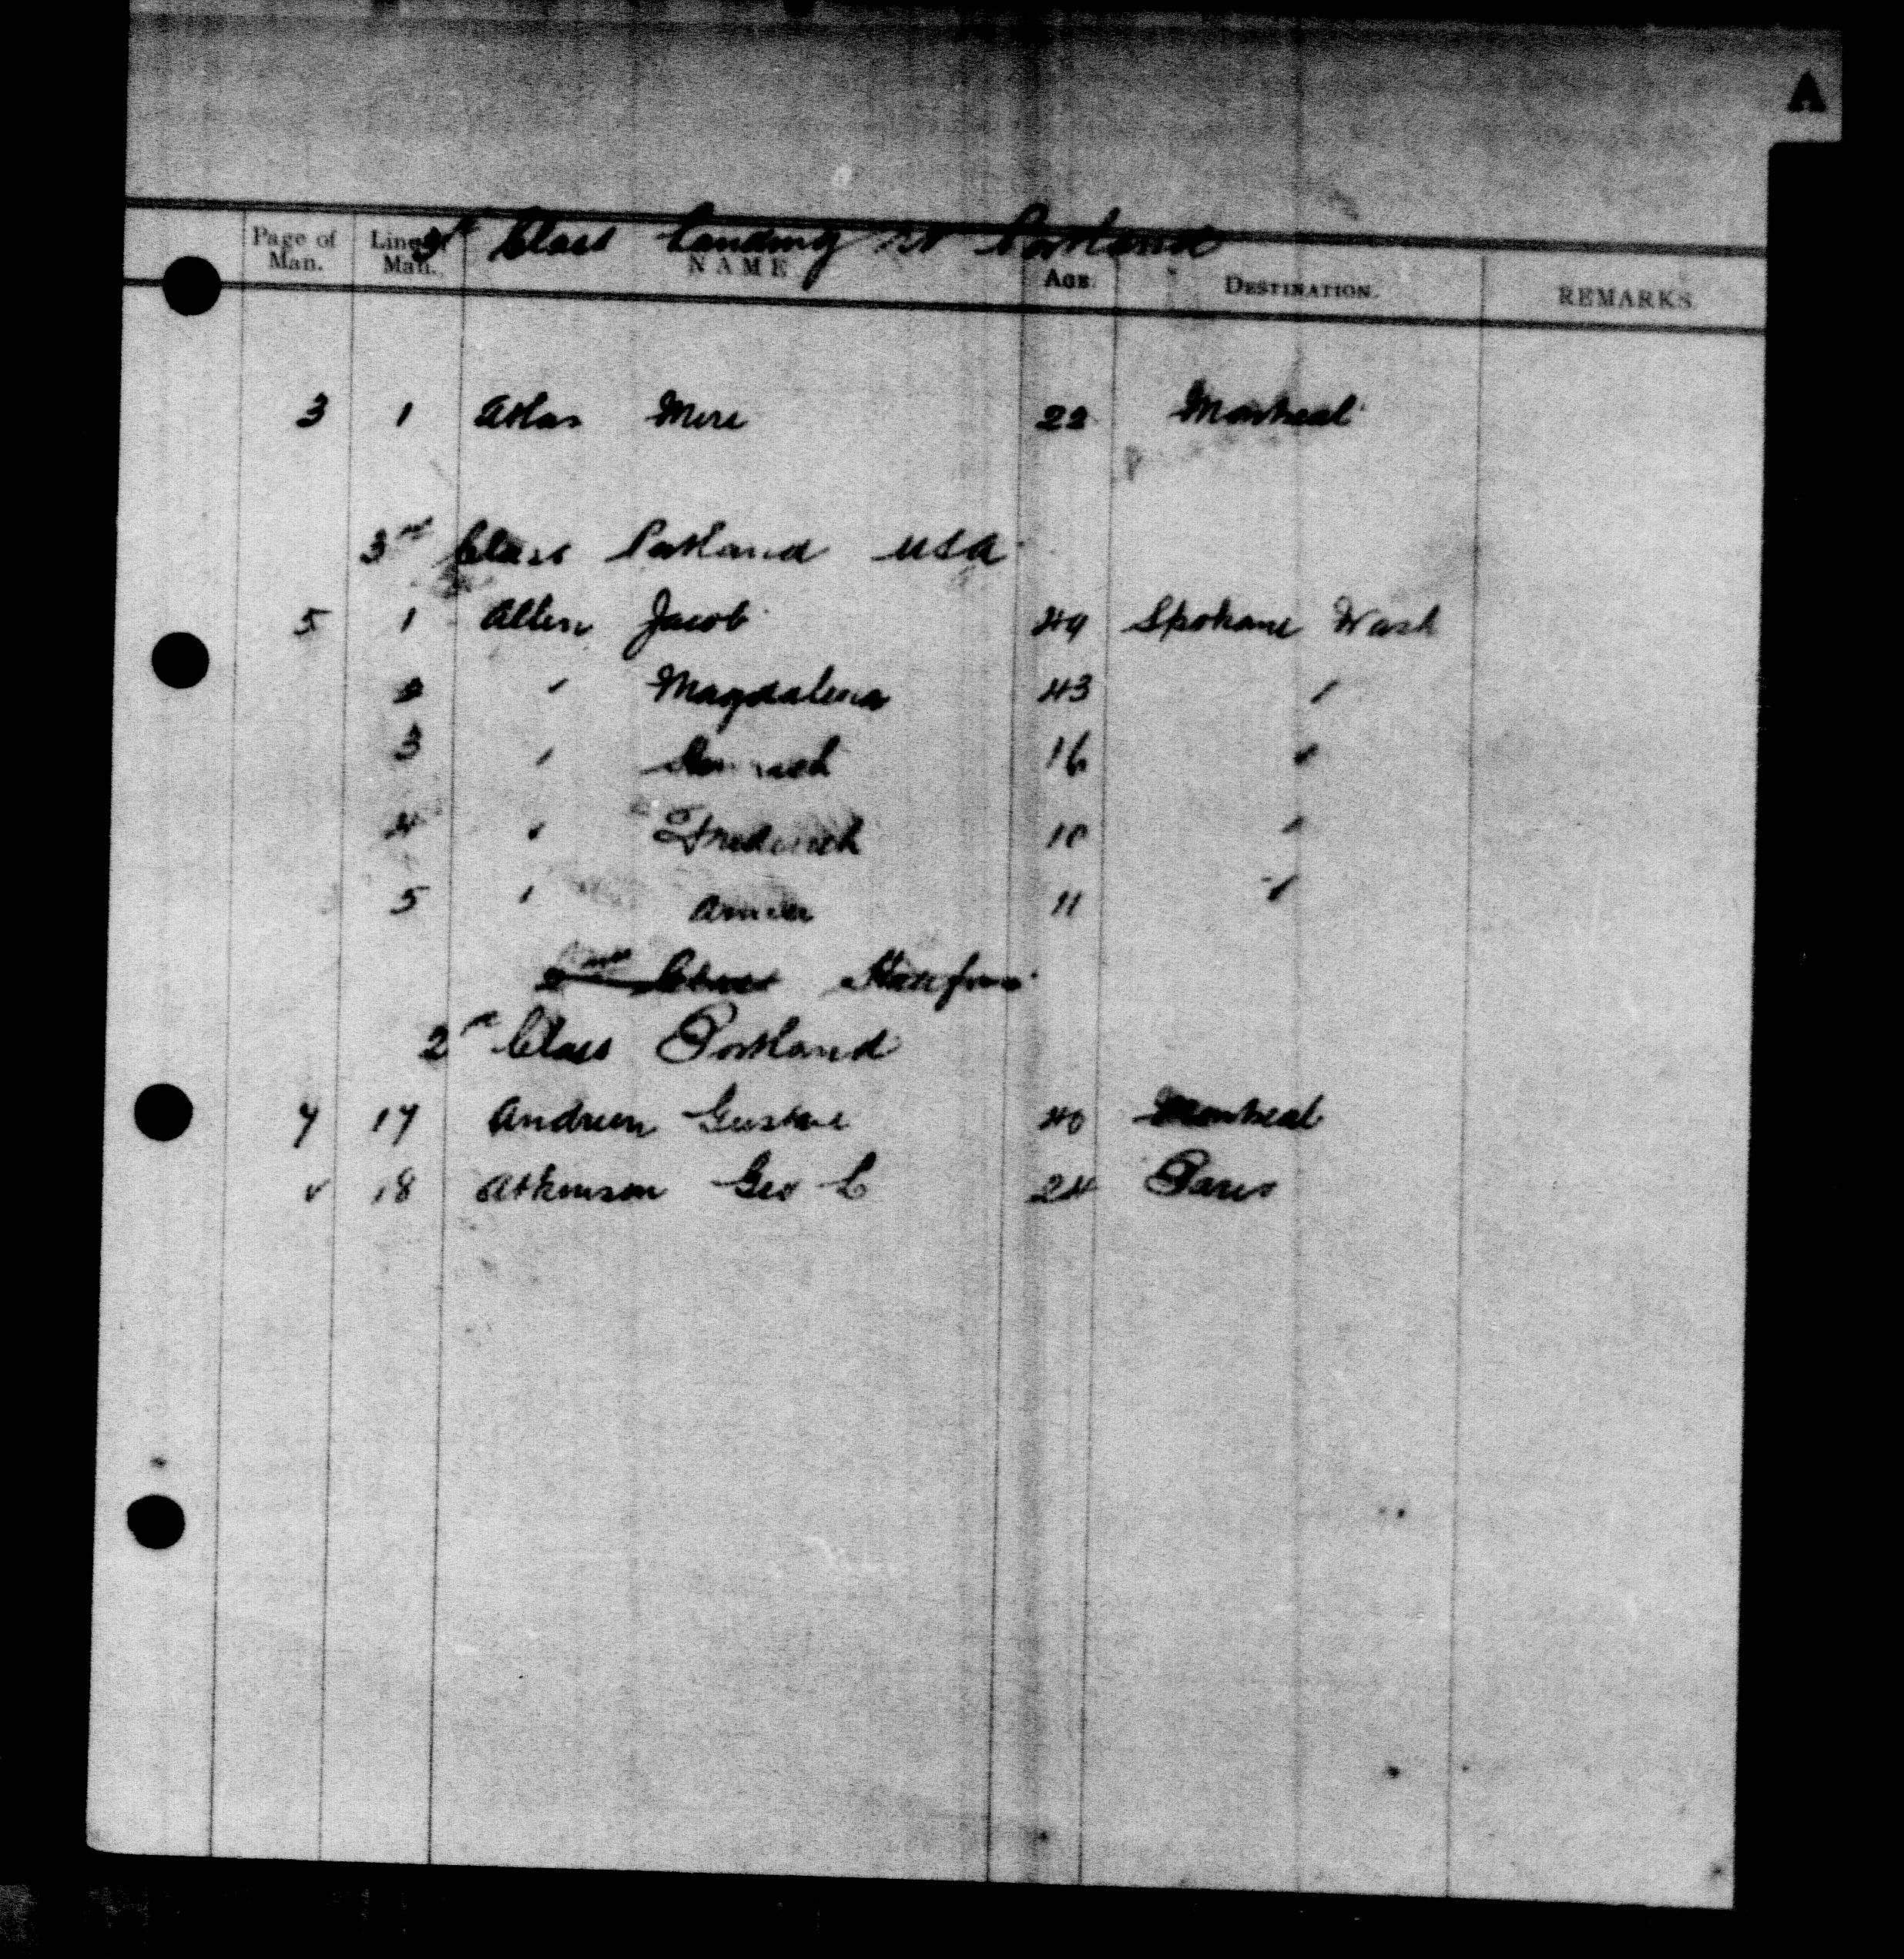 A
3rd Class Landing at Portland
Page of Man. Line Man. NAME Age. DESTINATION. REMARKS.
3 1 Atlas Mere 22 Montreal
3rd Class Portland USA
5 1 Allen Jacob 49 Spokane Wash
2 " Magdalena 43 "
3 " 16 "
4 " Frederick 10 "
5 " 11 "
2nd Class
2nd Class Portland
7 17 Andreen Gustave 40 Montreal
" 18 Atkinson Geo C 24 Paris